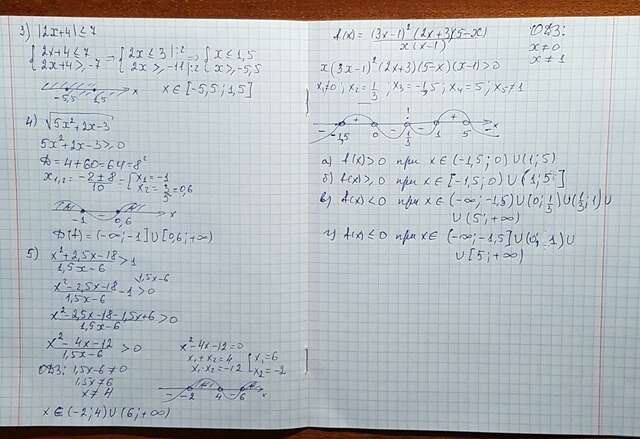 3) |2x+4| ≤ 7
{ 2x+4 ≤ 7 ⇒ { 2x ≤ 3 |:2 ⇒ { x ≤ 1,5
2x+4 ≥ -7 2x ≥ -11 |:2 x ≥ -5,5
-5,5 1,5 x x ∈ [-5,5; 1,5]
4) √5x²+2x-3
5x²+2x-3 ≥ 0
D = 4+60 = 64 = 8²
x₁,₂ = (-2±8)/10 = [ x₁ = -1
x₂ = 3/5 = 0,6
-1 0,6 x
D(f) = (-∞; -1] ∪ [0,6; +∞)
5) (x²+2,5x-18)/(1,5x-6) > 1
(x²-2,5x-18)/(1,5x-6) - 1 > 0
1,5x-6
(x²-2,5x-18-1,5x+6)/(1,5x-6) > 0
(x²-4x-12)/(1,5x-6) > 0
x²-4x-12=0
x₁+x₂=4
x₁·x₂=-12
[ x₁=6
x₂=-2
ОДЗ: 1,5x-6 ≠ 0
1,5x ≠ 6
x ≠ 4
-2 4 6 x
x ∈ (-2; 4) ∪ (6; +∞)
f(x) = (3x-1)²(2x+3)(5-x)/x(x-1)
ОДЗ:
x ≠ 0
x ≠ 1
x(3x-1)²(2x+3)(5-x)(x-1) > 0
x₁≠0; x₂=1/3; x₃=-1,5; x₄=5; x₅≠1
- -1,5 + 0 - 1/3 - 1 + 5 - x
а) f(x) > 0 при x ∈ (-1,5; 0) ∪ (1; 5)
б) f(x) ≥ 0 при x ∈ [-1,5; 0) ∪ (1; 5]
в) f(x) < 0 при x ∈ (-∞; -1,5) ∪ (0; 1/3) ∪ (1/3; 1) ∪
∪ (5; +∞)
г) f(x) ≤ 0 при x ∈ (-∞; -1,5] ∪ (0; 1) ∪
∪ [5; +∞)